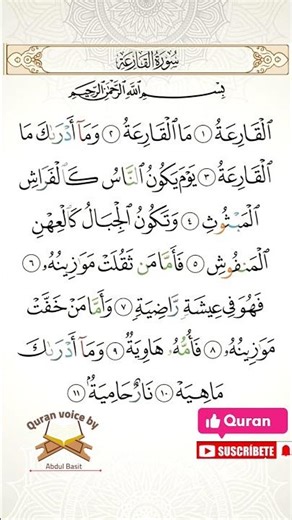 سُورَةُ القَارِعَة
بِسْمِ ٱللَّهِ ٱلرَّحْمَٰنِ ٱلرَّحِيمِ
ٱلْقَارِعَةُ ١ مَا ٱلْقَارِعَةُ ٢ وَمَآ أَدْرَىٰكَ مَا
ٱلْقَارِعَةُ ٣ يَوْمَ يَكُونُ ٱلنَّاسُ كَٱلْفَرَاشِ
ٱلْمَبْثُوثِ ٤ وَتَكُونُ ٱلْجِبَالُ كَٱلْعِهْنِ
ٱلْمَنفُوشِ ٥ فَأَمَّا مَن ثَقُلَتْ مَوَٰزِينُهُۥ ٦
فَهُوَ فِى عِيشَةٍ رَّاضِيَةٍ ٧ وَأَمَّا مَنْ خَفَّتْ
مَوَٰزِينُهُۥ ٨ فَأُمُّهُۥ هَاوِيَةٌ ٩ وَمَآ أَدْرَىٰكَ
مَاهِيَهْ ١٠ نَارٌ حَامِيَةٌۢ ١١
Quran voice by
Abdul Basit
Quran
SUSCRÍBETE